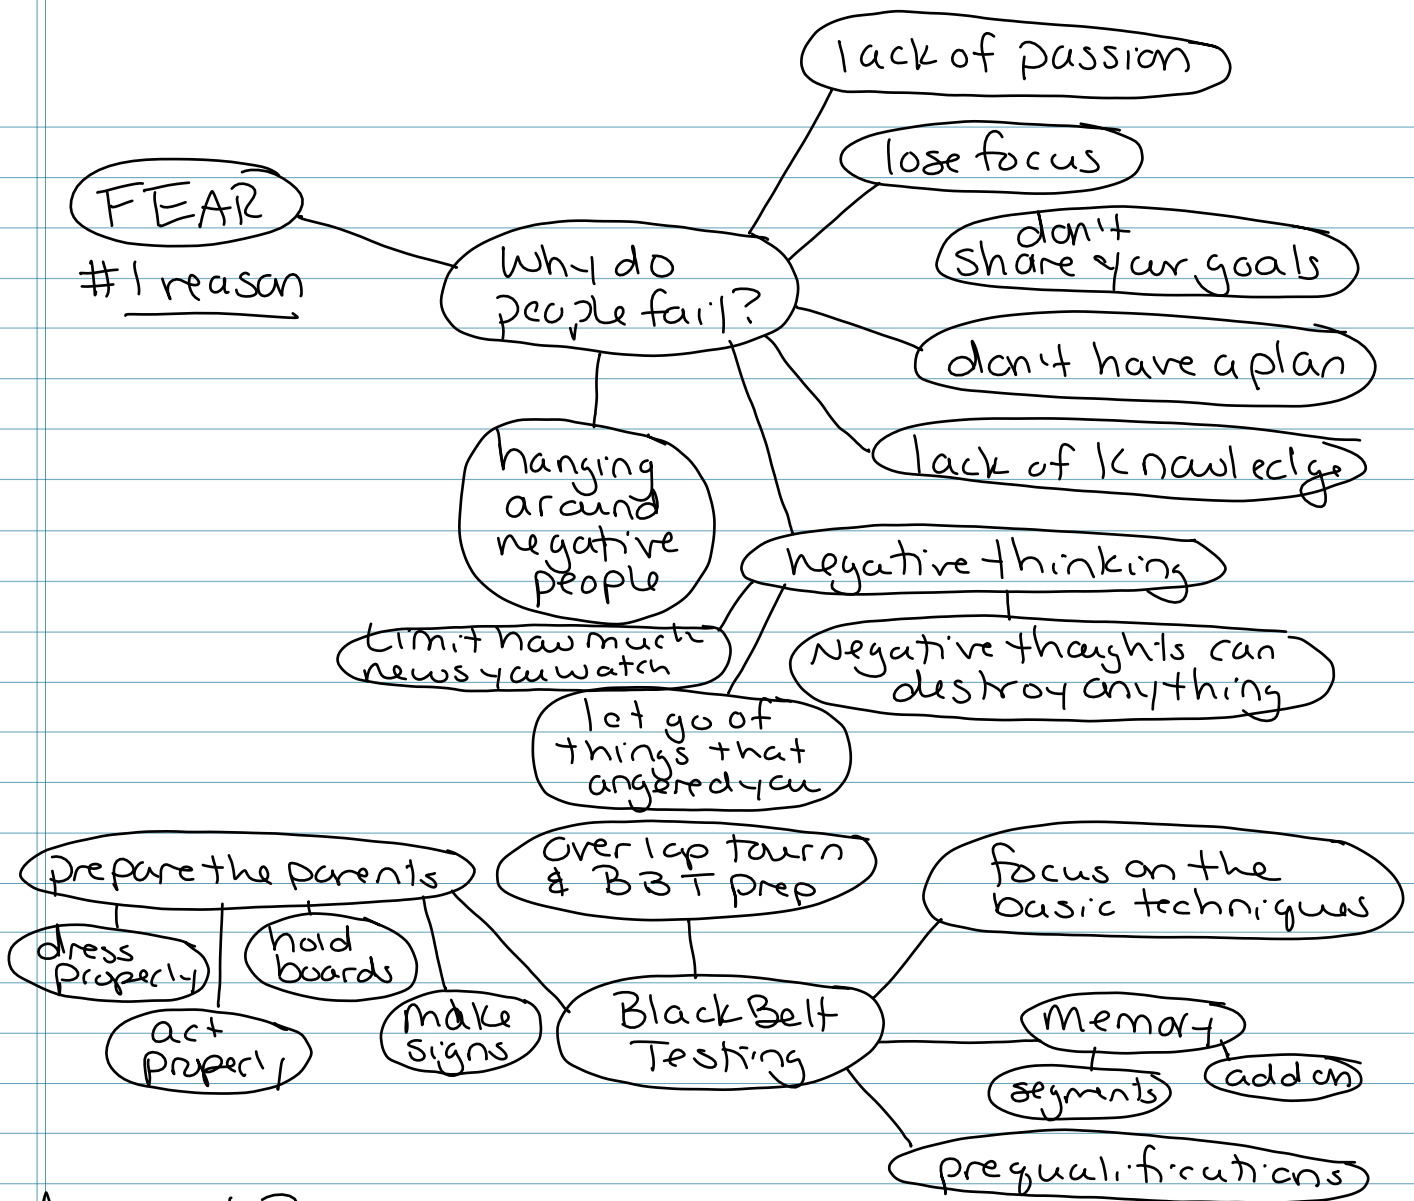 lack of passion
lose focus
FEAR
#1 reason
Why do
people fail?
don't
share your goals
don't have a plan
lack of knowledge
hanging
around
negative
people
negative thinking
Limit how much
news you watch
Negative thoughts can
destroy anything
let go of
things that
angered you
prepare the parents
overlap tourn
& BBT prep
focus on the
basic techniques
dress
properly
hold
boards
act
properly
make
signs
Black Belt
Testing
memory
segments
add on
prequalifications